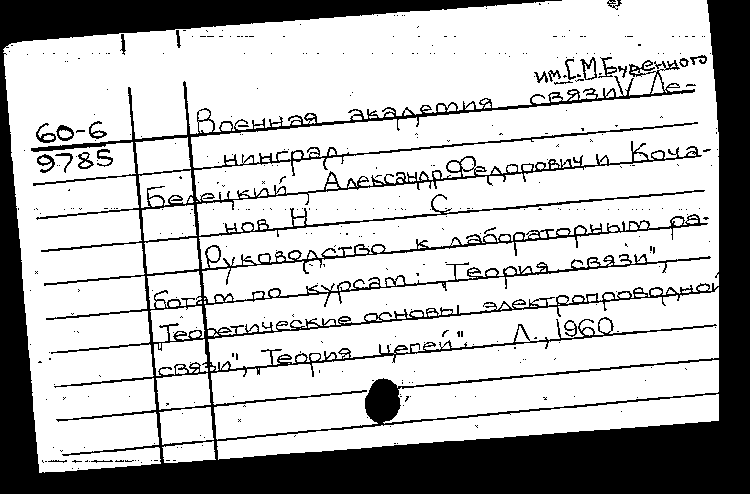 им. С.М. Буденного
60-6 Военная академия связи√ Ле-
9785 нинград.
Белецкий, Александр Федорович и Коча-
нов, Н С
Руководство к лабораторным ра-
ботам по курсам: „Теория связи",
„Теоретические основы электропроводной
связи", „Теория цепей". Л., 1960